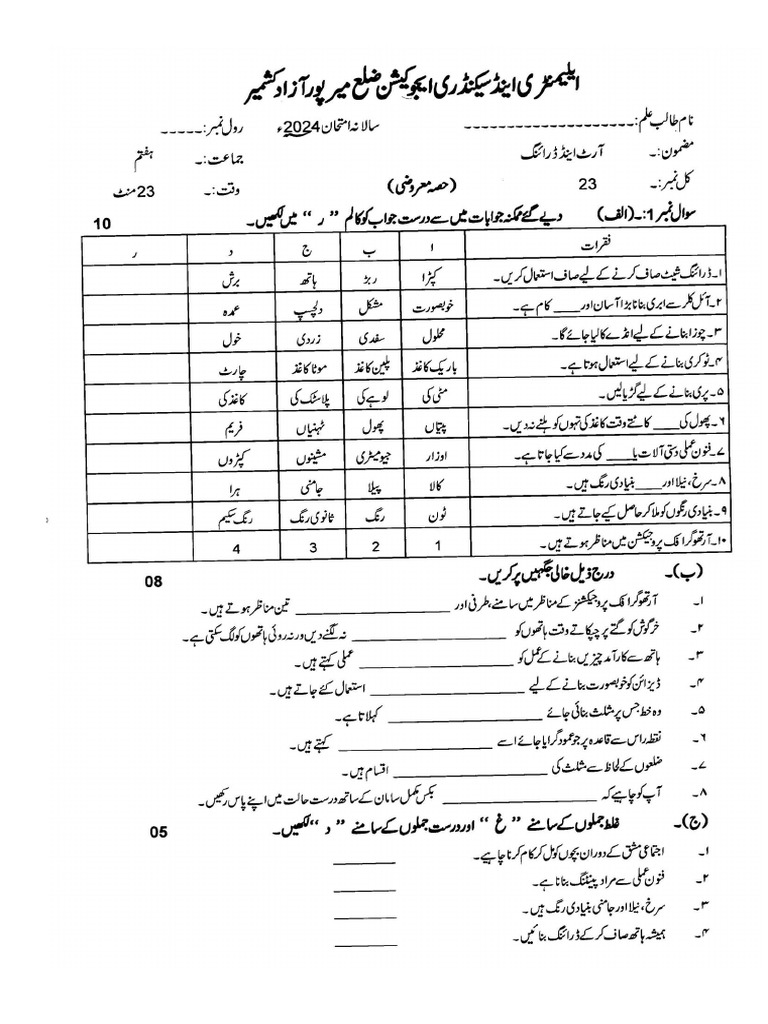 ایلیمنٹری اینڈ سیکنڈری ایجوکیشن ضلع میرپور آزاد کشمیر
نام طالب علم:۔-------------------- سالانہ امتحان 2024ء رول نمبر:۔-----
مضمون:۔ آرٹ اینڈ ڈرائنگ جماعت:۔ ہفتم
کل نمبر:۔ 23 (حصہ معروضی) وقت:۔ 23 منٹ
سوال نمبر 1:۔ (الف) دیے گئے ممکنہ جوابات میں سے درست جواب کو کالم ”ر“ میں لکھیں۔ 10
فقرات ا ب ج د ر
۱۔ ڈرائنگ شیٹ صاف کرنے کے لیے صاف استعمال کریں۔ کپڑا ربڑ ہاتھ برش
۲۔ آئل کلر سے ابری بنانا بڑا آسان اور ____ کام ہے۔ خوبصورت مشکل دلچسپ عمدہ
۳۔ چوزا بنانے کے لیے انڈے کا لیا جائے گا۔ محلول سفدی زردی خول
۴۔ ٹوکری بنانے کے لیے استعمال ہوتا ہے۔ باریک کاغذ پلین کاغذ موٹا کاغذ چارٹ
۵۔ پری بنانے کے لیے گڑیا لیں۔ مٹی کی لوہے کی پلاسٹک کی کاغذ کی
۶۔ پھول کی ____ کاٹتے وقت کاغذ کی تہوں کو ہلنے نہ دیں۔ پتیاں پھول ٹہنیاں فریم
۷۔ فنون عملی دستی آلات یا ____ کی مدد سے کیا جاتا ہے۔ اوزار جیومیٹری مشینوں کپڑوں
۸۔ سرخ، نیلا اور ____ بنیادی رنگ ہیں۔ کالا پیلا جامنی ہرا
۹۔ بنیادی رنگوں کو ملا کر حاصل کیے جاتے ہیں۔ ٹون رنگ ثانوی رنگ رنگ سکیم
۱۰۔ آرتھوگرافک پروجیکشن میں مناظر ہوتے ہیں۔ 1 2 3 4
(ب)۔ درج ذیل خالی جگہیں پر کریں۔ 08
۱۔ آرتھوگرافک پروجیکشنز کے مناظر میں سامنے، طرفی اور ____________ تین مناظر ہوتے ہیں۔
۲۔ خرگوش کو گتے پر چپکاتے وقت ہاتھوں کو ____________ نہ لگنے دیں ورنہ روئی ہاتھوں کو لگ سکتی ہے۔
۳۔ ہاتھ سے کارآمد چیزیں بنانے کے عمل کو ____________ عملی کہتے ہیں۔
۴۔ ڈیزائن کو خوبصورت بنانے کے لیے ____________ استعمال کئے جاتے ہیں۔
۵۔ وہ خط جس پر مثلث بنائی جائے ____________ کہلاتا ہے۔
۶۔ نقطہ راس سے قاعدہ پر جو عمود گرایا جائے اسے ____________ کہتے ہیں۔
۷۔ ضلعوں کے لحاظ سے مثلث کی ____________ اقسام ہیں۔
۸۔ آپ کو چاہیے کہ ____________ بکس مکمل سامان کے ساتھ درست حالت میں اپنے پاس رکھیں۔
(ج)۔ غلط جملوں کے سامنے ”غ“ اور درست جملوں کے سامنے ”د“ لکھیں۔ 05
۱۔ اجتماعی مشق کے دوران بچوں کو مل کر کام کرنا چاہیے۔ ______
۲۔ فنون عملی سے مراد پینٹنگ بنانا ہے۔ ______
۳۔ سرخ، نیلا اور جامنی بنیادی رنگ ہیں۔ ______
۴۔ ہمیشہ ہاتھ صاف کر کے ڈرائنگ بنائیں۔ ______